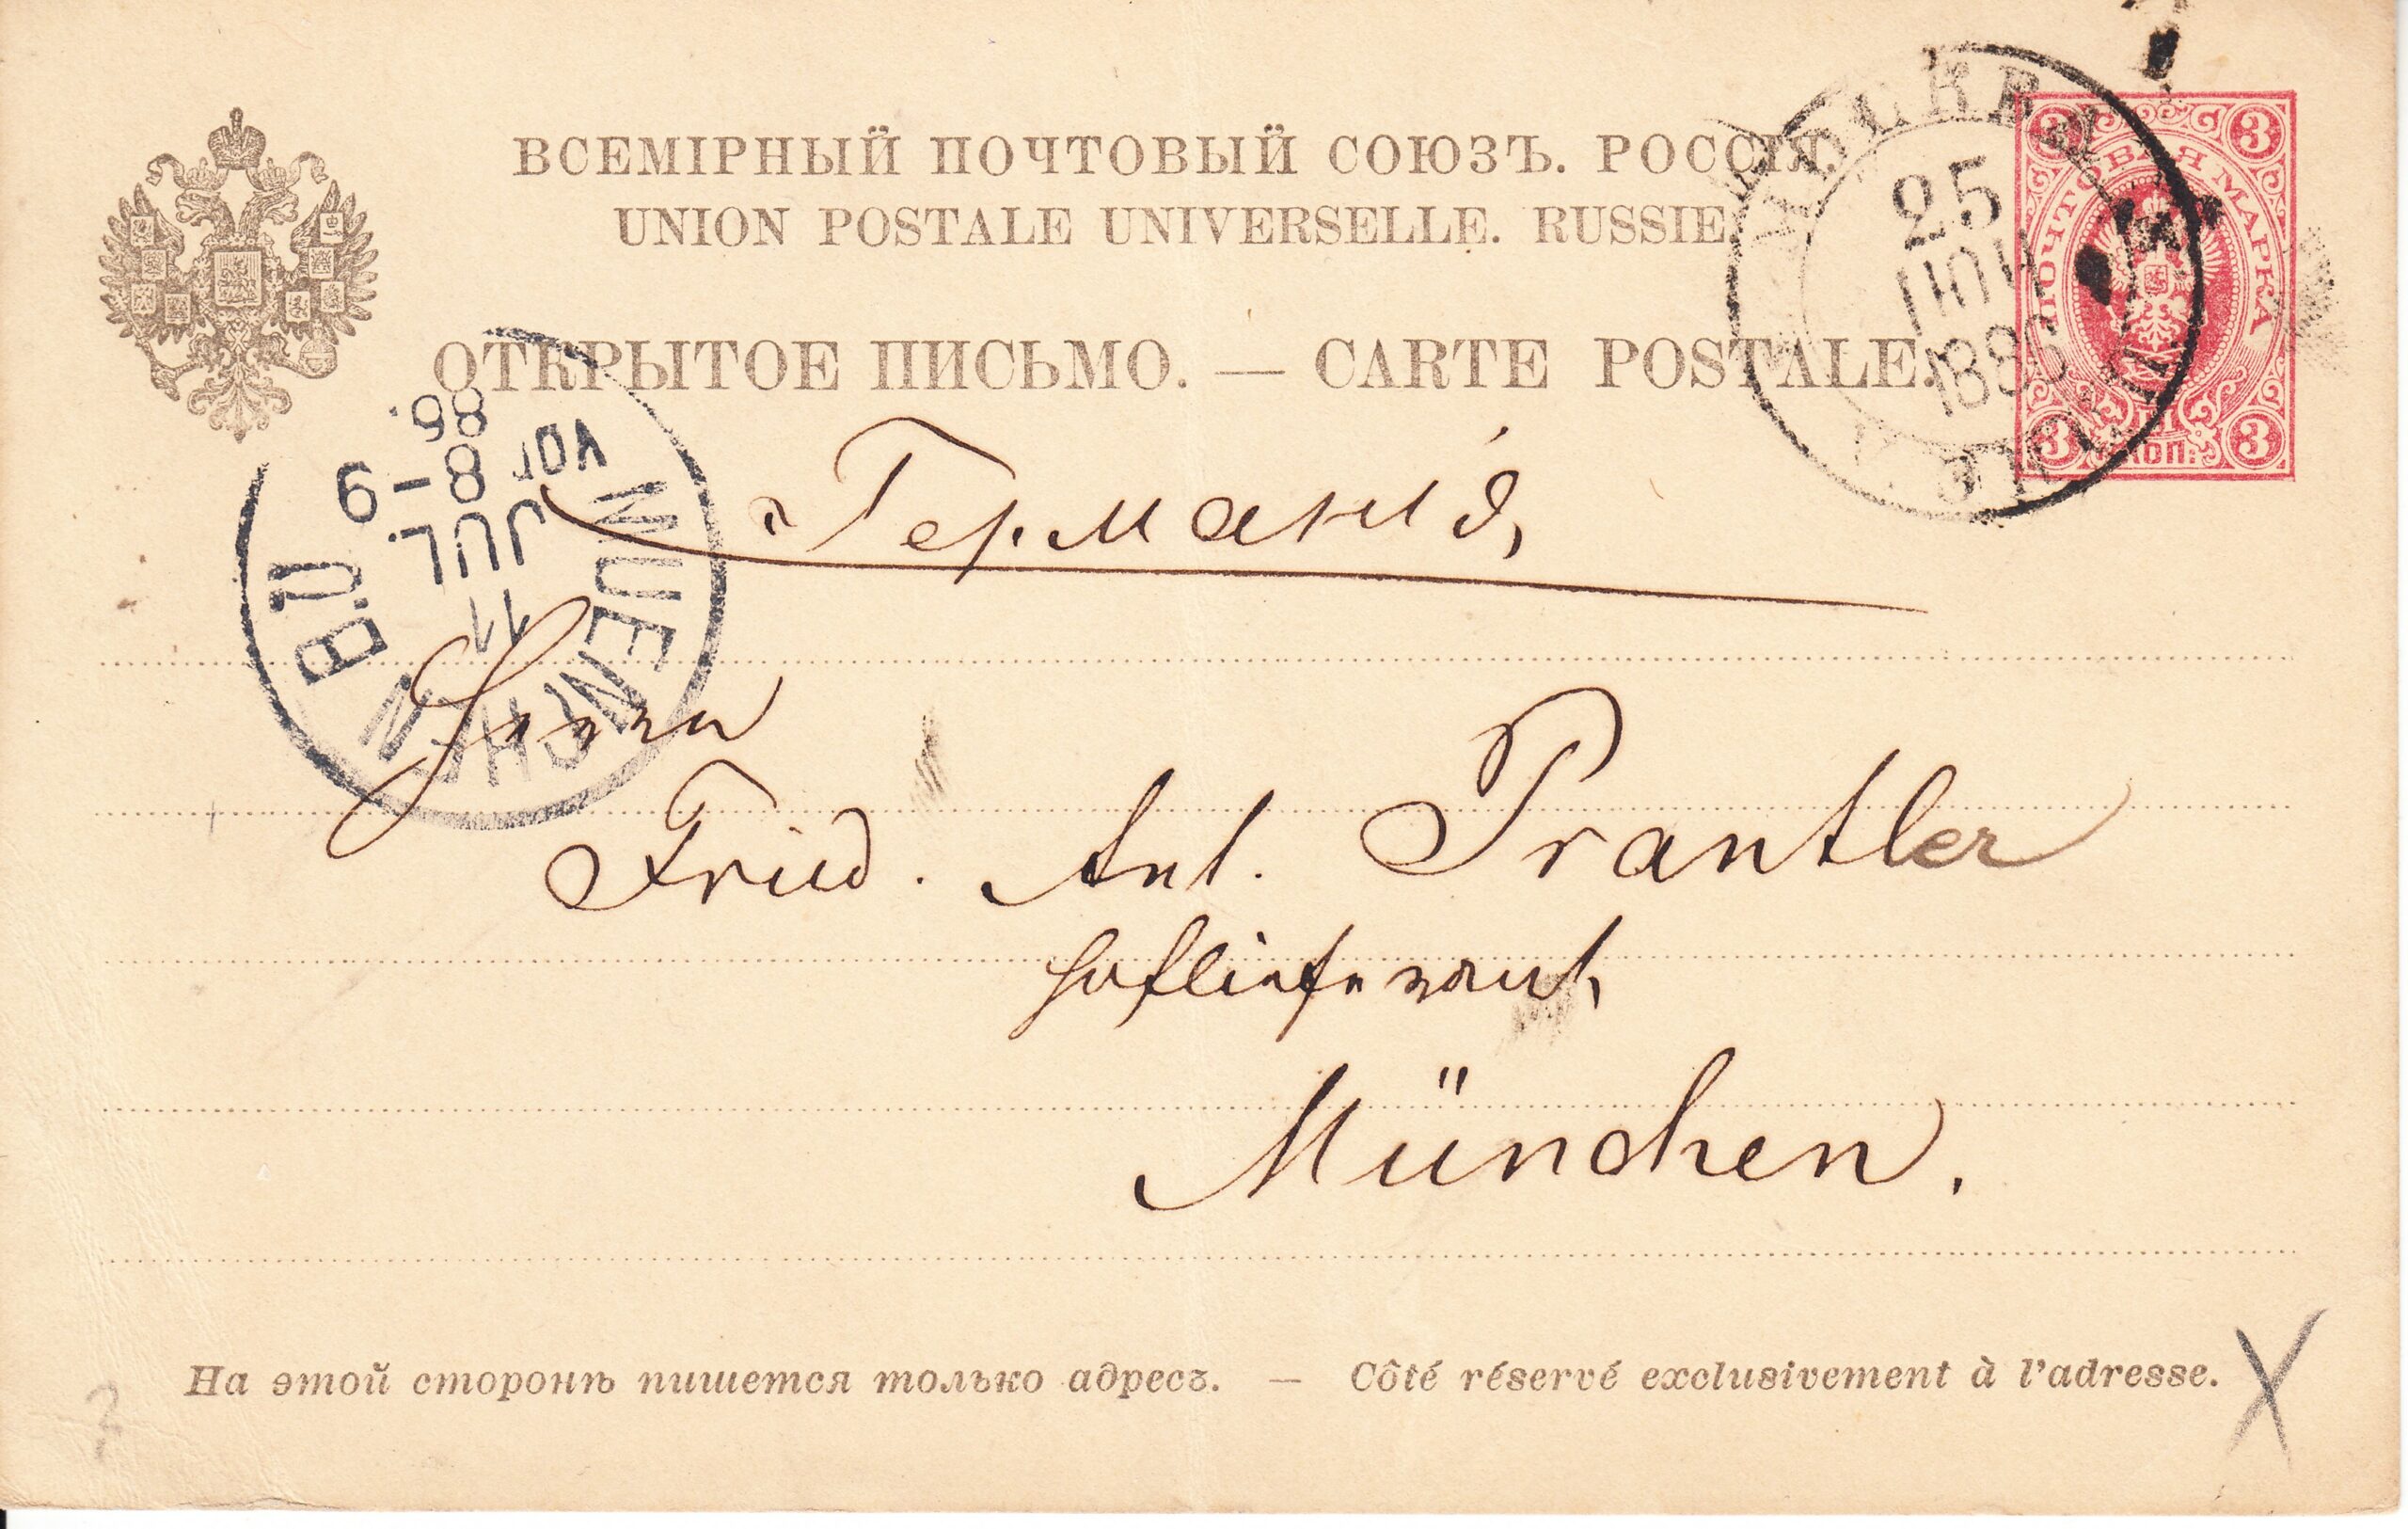 ВСЕМІРНЫЙ ПОЧТОВЫЙ СОЮЗЪ. РОССІЯ.
UNION POSTALE UNIVERSELLE. RUSSIE.
ОТКРЫТОЕ ПИСЬМО. — CARTE POSTALE.
МОСКВА
25
ІЮН
3
3
ПОЧТОВАЯ МАРКА
3 КОП. 3
MUENCHEN
B.I
11
JUL
8-9
Vor
86.
Германія,
Herrn
Fried. Ant. Prantler
Hoflieferant,
München.
На этой сторонѣ пишется только адресъ. — Côté réservé exclusivement à l'adresse.